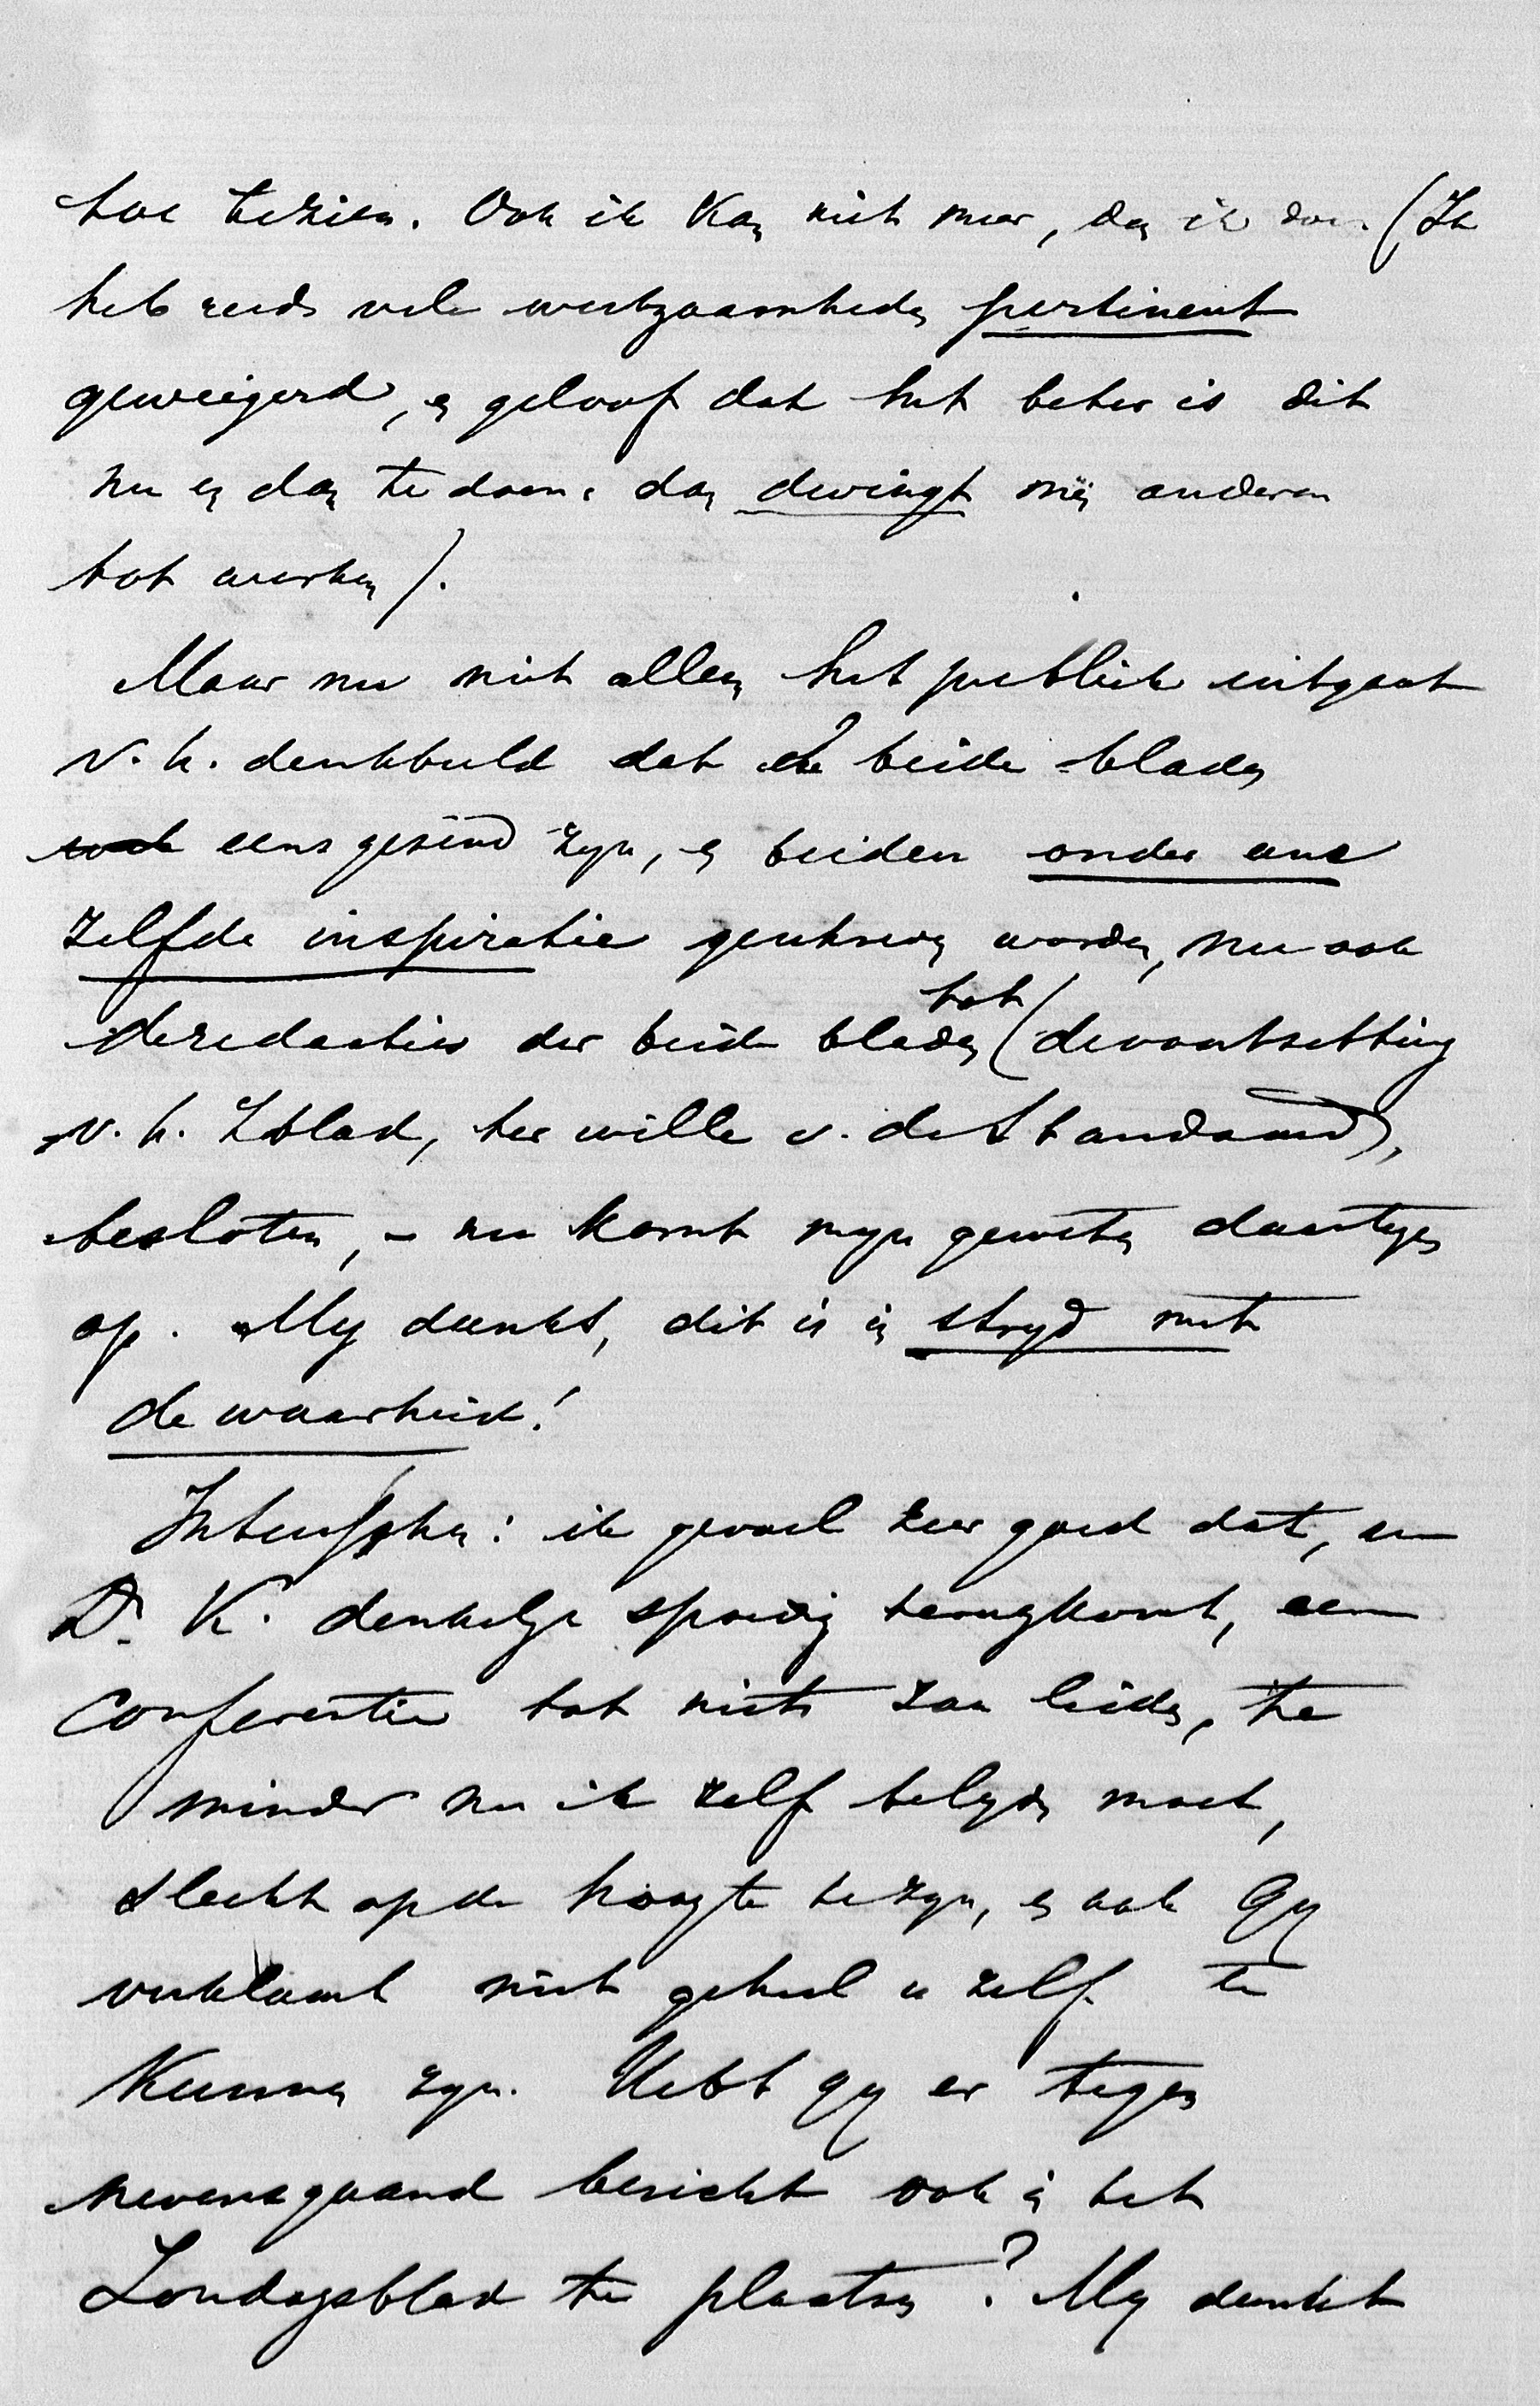 toe te zien. Ook ik kan niet meer, dan ik doe. (Ik
heb reeds vele werkzaamheden pertinent
geweigerd, en geloof dat het beter is dit
nu en dan te doen: dan dwingt men anderen
tot werken).
Maar nu niet alleen het publiek uitgaat
v. h. denkbeeld dat de beide bladen
eensgesind zyn, en beiden onder eene
zelfde inspiratie geschreven worden, nu ook
de redactie der beide bladen tot (de voortzetting
v. h. Zblad, ter wille v. de Standaard),
besloten, – nu komt myn geweten daartegen
op. My dunkt, dit is in stryd met
de waarheid!
Intusschen: ik gevoel zeer goed dat, nu
Dr. K. denkelyk spoedig terugkomt, een
conferentie tot niets zou leiden, te
minder nu ik zelf belyden moet,
slecht op de hoogte te zyn, en ook Gy
verklaart niet geheel u zelf te
kunnen zyn. Hebt gy er tegen
nevensgaand bericht ook in het
Zondagsblad te plaatsen? My dunkt